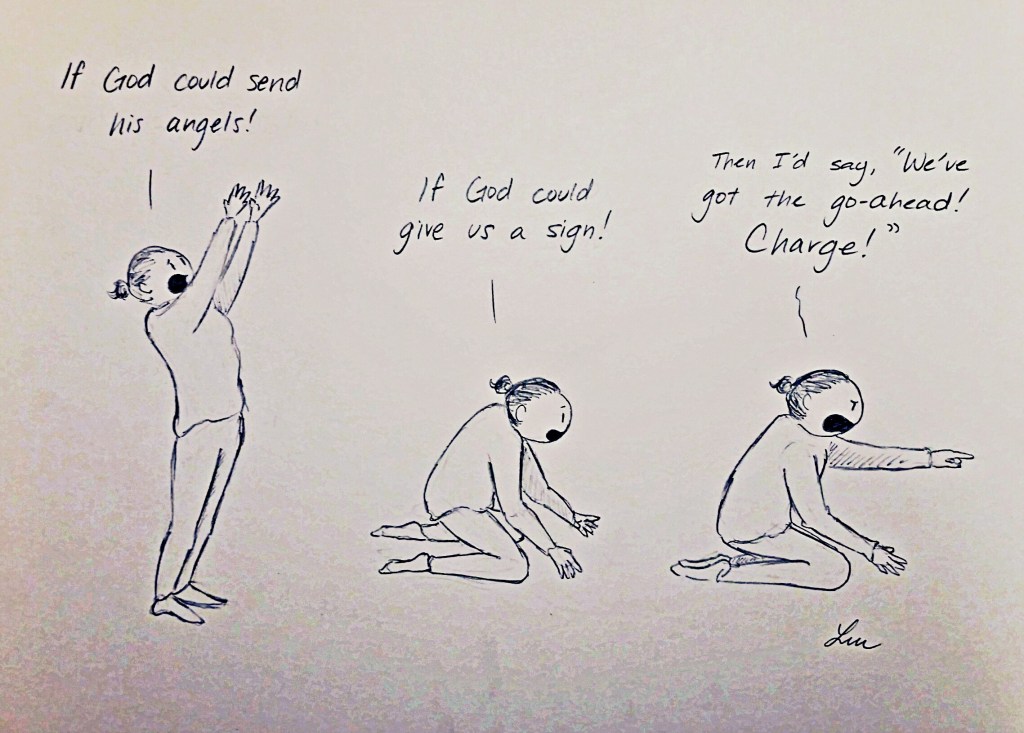 If God could send
his angels!
If God could
give us a sign!
Then I'd say, "We've
got the go-ahead!
Charge!"